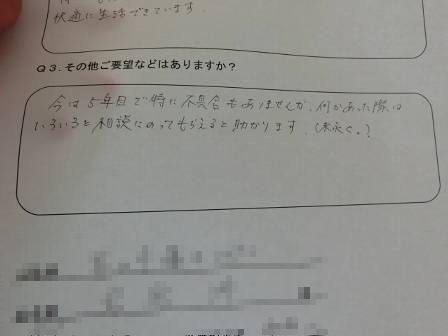 快適に生活できています.
Q3.その他ご要望などはありますか?
今は5年目で特に不具合もありませんが、何かあった際は
いろいろと相談にのってもらえると助かります.(末永く。)